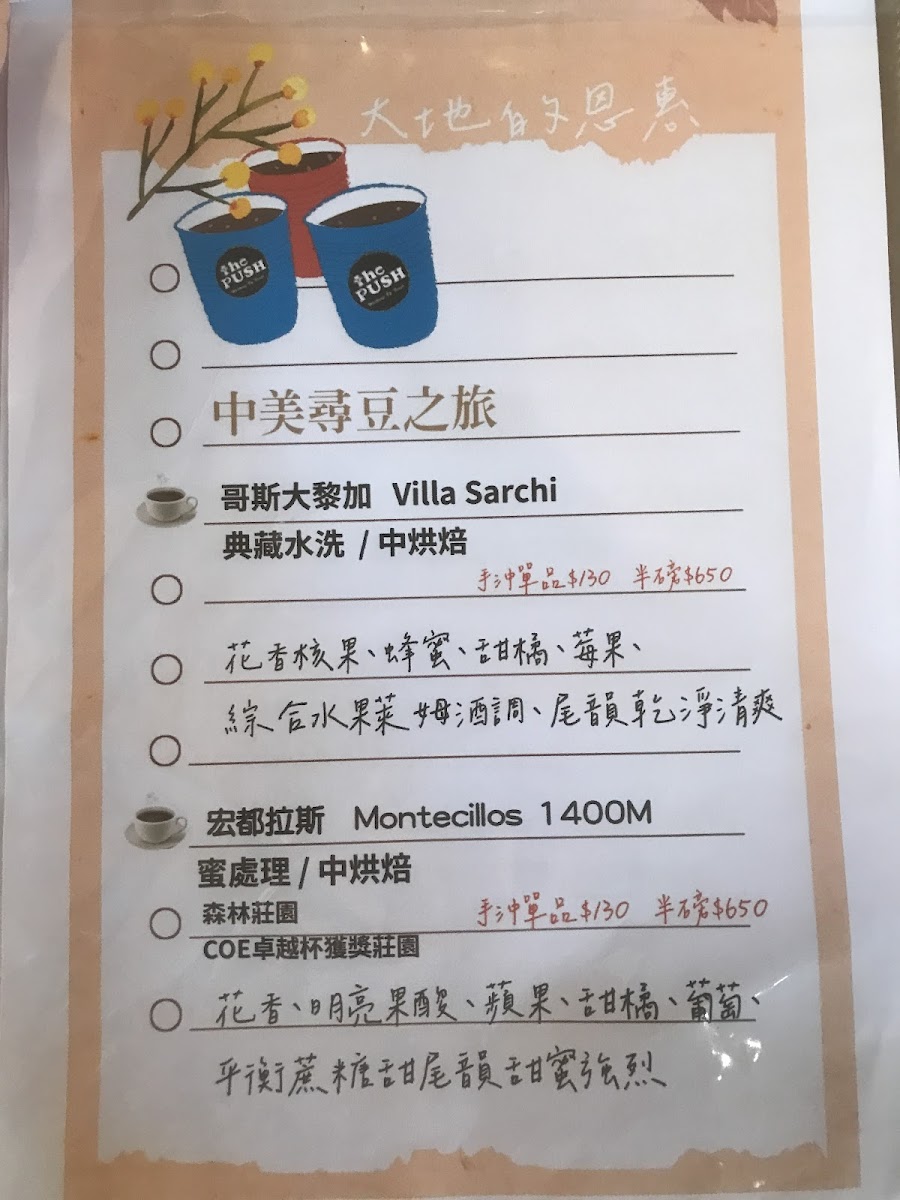 大地的恩惠
the PUSH
the PUSH
中美尋豆之旅
哥斯大黎加 Villa Sarchi
典藏水洗 / 中烘焙
手沖單品$130 半磅$650
花香核果、蜂蜜、甜橘、莓果、
綜合水果萊姆酒調、尾韻乾淨清爽
宏都拉斯 Montecillos 1400M
蜜處理 / 中烘焙
森林莊園
手沖單品$130 半磅$650
COE卓越杯獲獎莊園
花香、明亮果酸、蘋果、甜橘、葡萄、
平衡蔗糖甜尾韻甜蜜強烈